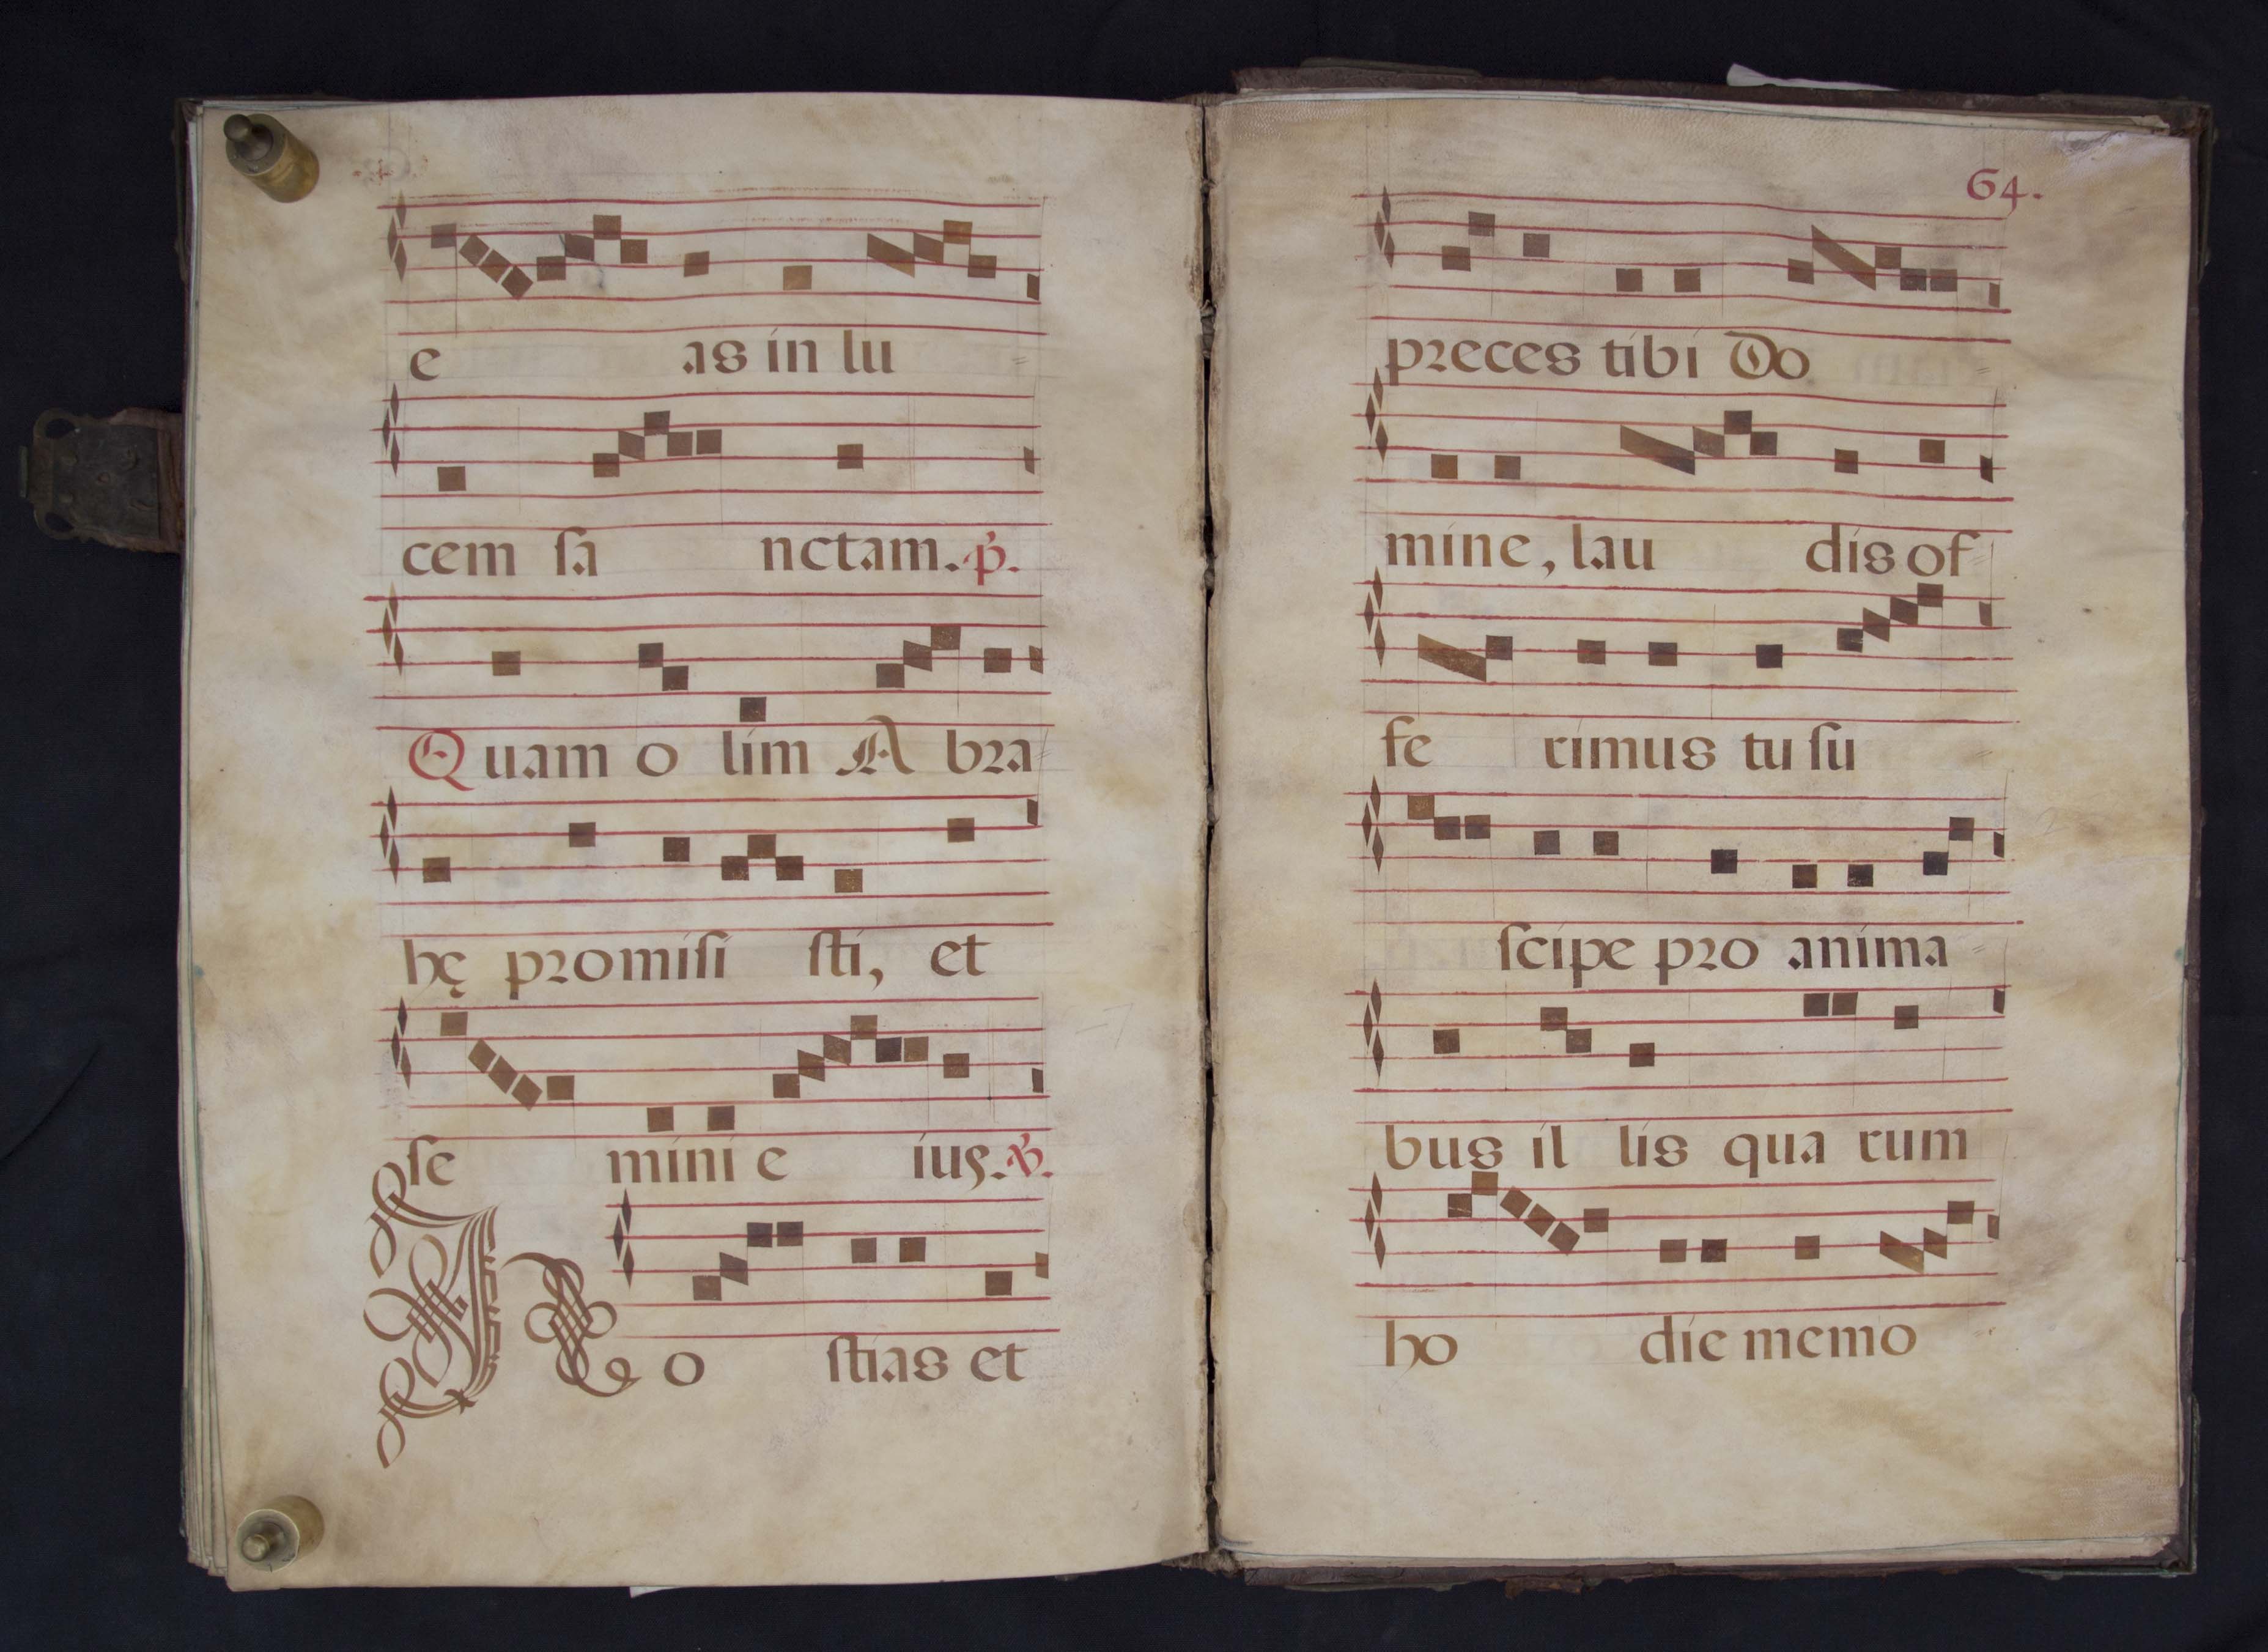 e as in lu
cem ſa nctam. p̃.
Quam o lim A bra
hę promiſi ſti, et
ſe mini e ius. ℣.
Ho ſtias et
64.
preces tibi Do
mine, lau dis of
fe rimus tu ſu
ſcipe pro anima
bus il lis qua rum
ho die memo